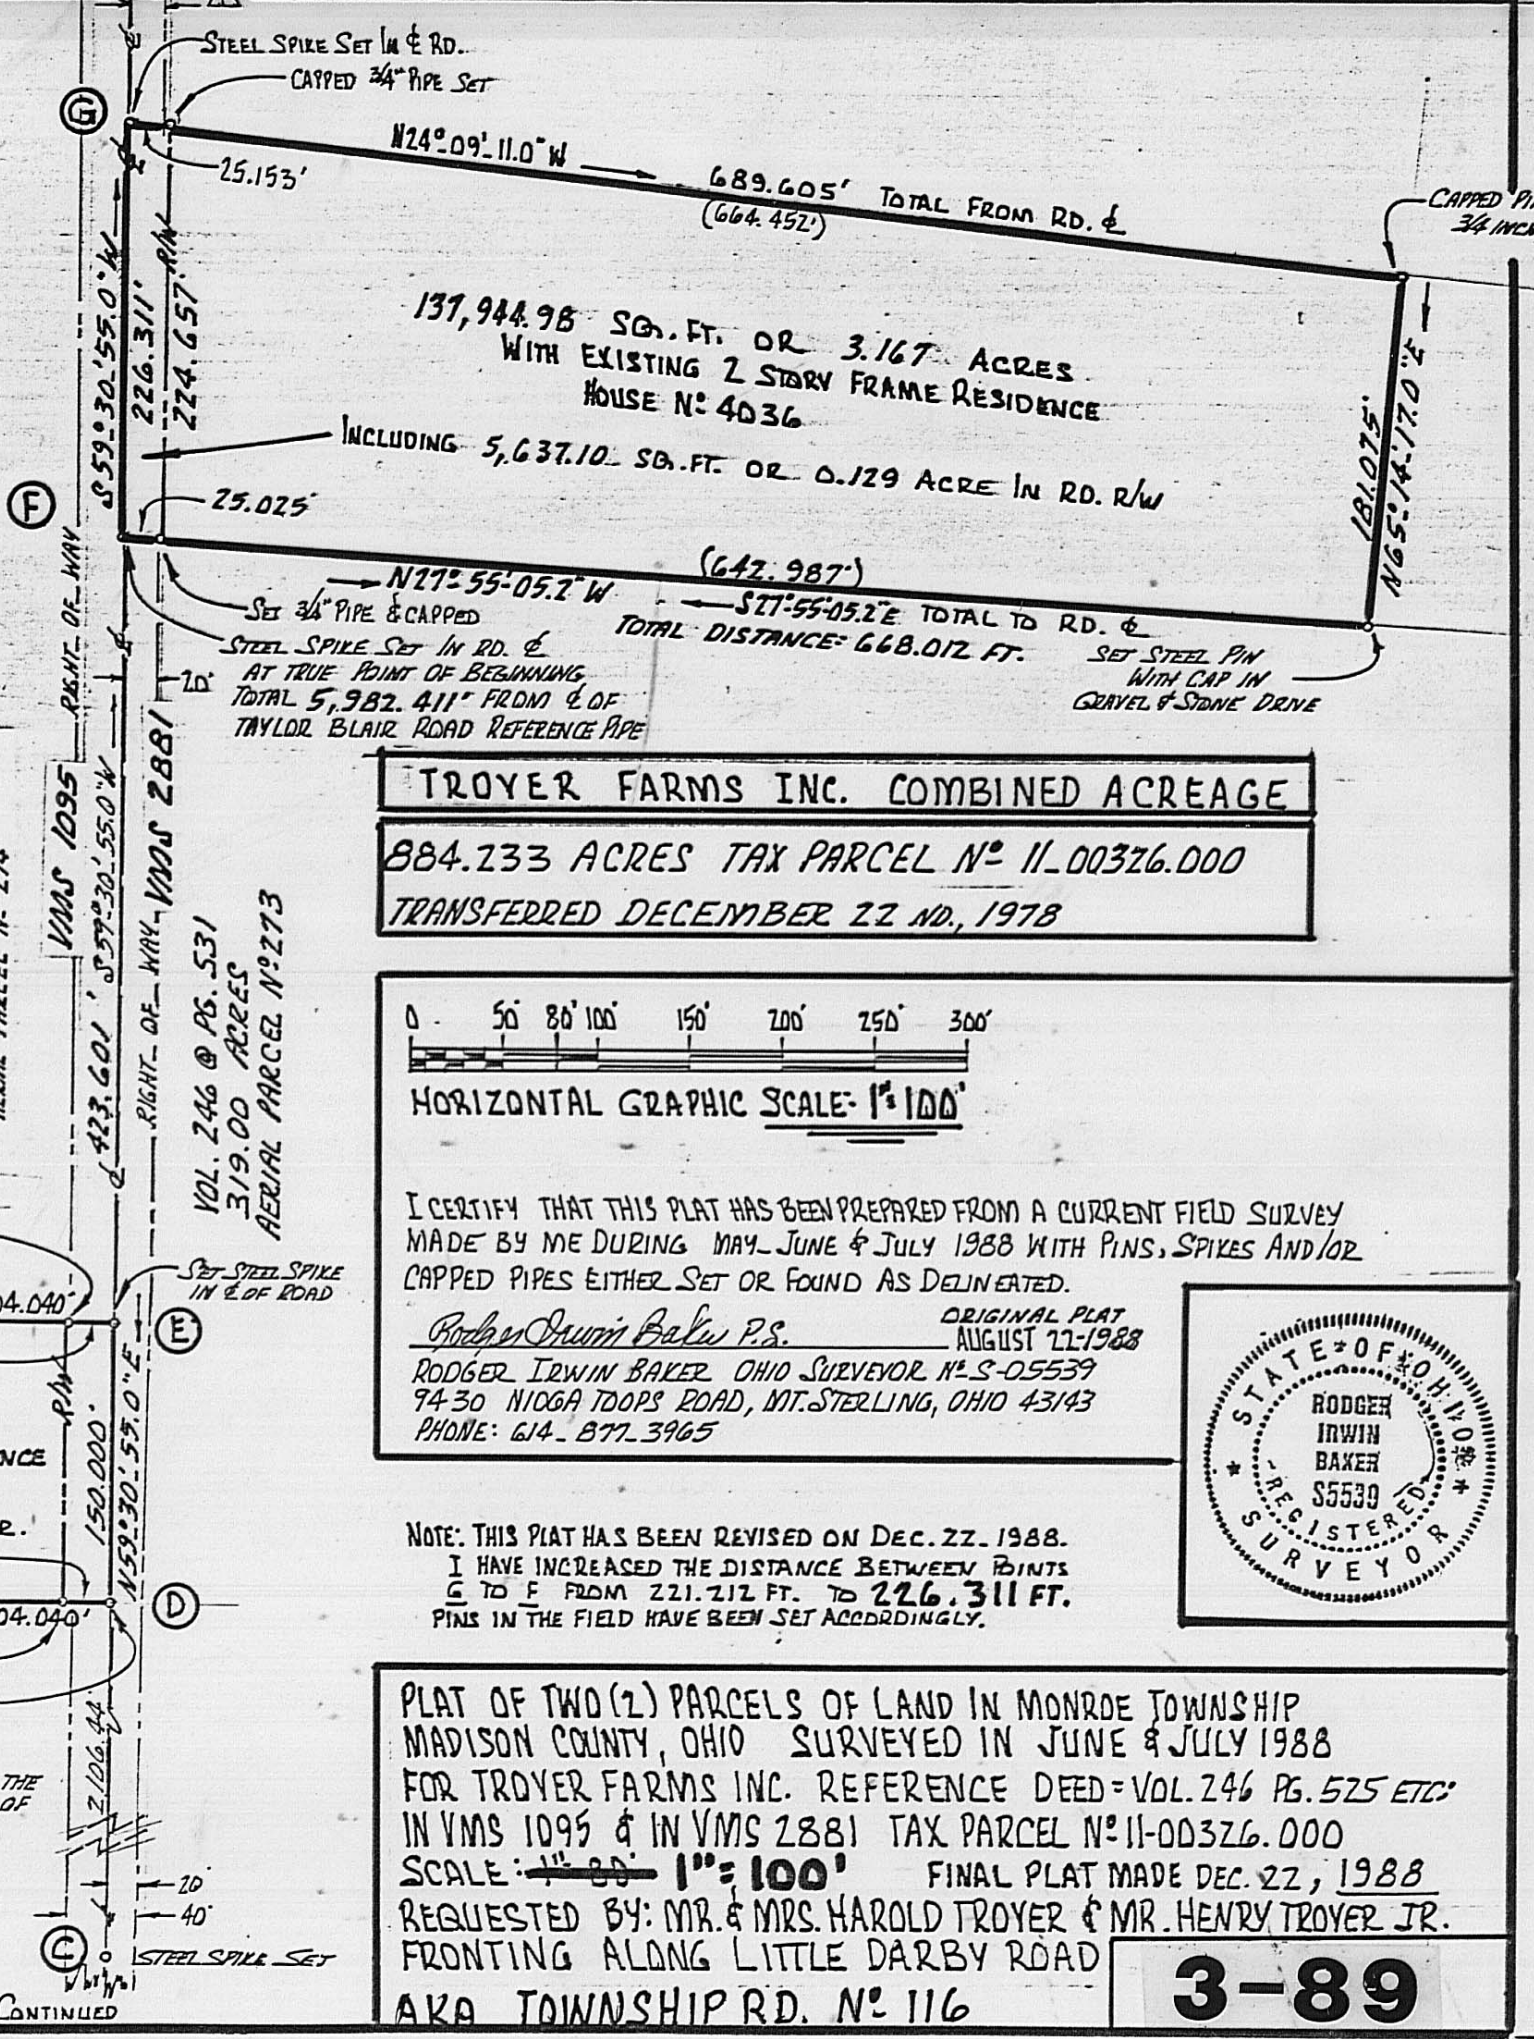 STEEL SPIKE SET IN ℄ RD.
CAPPED 3/4" PIPE SET
G
25.153'
N24°-09'-11.0" W
689.605' TOTAL FROM RD. ℄
(664.452')
CAPPED PI
3/4 INCH
S59°30'55.0" W
226.311'
224.657' R/W
137,944.98 SQ. FT. OR 3.167 ACRES
WITH EXISTING 2 STORY FRAME RESIDENCE
HOUSE Nº 4036
INCLUDING 5,637.10 SQ. FT. OR 0.129 ACRE IN RD. R/W
181.075'
N65°-14'-17.0"E
F
25.025'
(642.987')
N27°-55'-05.2" W
S27°-55'-05.2"E TOTAL TO RD. ℄
TOTAL DISTANCE = 668.012 FT.
SET 3/4" PIPE & CAPPED
STEEL SPIKE SET IN RD. ℄
AT TRUE POINT OF BEGINNING
TOTAL 5,982.411' FROM ℄ OF
TAYLOR BLAIR ROAD REFERENCE PIPE
SET STEEL PIN
WITH CAP IN
GRAVEL & STONE DRIVE
20'
RIGHT OF WAY
VMS 1095
VMS 2881
RIGHT OF WAY
S59°-30'-55.0" W
423.601'
VOL. 246 @ PG. 531
319.00 ACRES
AERIAL PARCEL Nº 273
TROYER FARMS INC. COMBINED ACREAGE
884.233 ACRES TAX PARCEL Nº 11-00326.000
TRANSFERRED DECEMBER 22 ND., 1978
0 50' 80' 100' 150' 200' 250' 300'
HORIZONTAL GRAPHIC SCALE: 1"=100'
I CERTIFY THAT THIS PLAT HAS BEEN PREPARED FROM A CURRENT FIELD SURVEY
MADE BY ME DURING MAY-JUNE & JULY 1988 WITH PINS, SPIKES AND/OR
CAPPED PIPES EITHER SET OR FOUND AS DELINEATED.
Rodger Irwin Baker P.S.
ORIGINAL PLAT
AUGUST 22-1988
RODGER IRWIN BAKER OHIO SURVEYOR Nº S-05539
9430 NIOGA TOOPS ROAD, MT. STERLING, OHIO 43143
PHONE: 614-877-3965
STATE OF OHIO
RODGER
IRWIN
BAKER
S5539
REGISTERED
SURVEYOR
SET STEEL SPIKE
IN ℄ OF ROAD
04.040'
E
R/W
150.000'
N59°30'-55.0"E
NCE
R.
D
04.040'
NOTE: THIS PLAT HAS BEEN REVISED ON DEC. 22-1988.
I HAVE INCREASED THE DISTANCE BETWEEN POINTS
G TO F FROM 221.212 FT. TO 226.311 FT.
PINS IN THE FIELD HAVE BEEN SET ACCORDINGLY.
2,106.44'
THE
OF
20'
40'
C
STEEL SPIKE SET
CONTINUED
PLAT OF TWO (2) PARCELS OF LAND IN MONROE TOWNSHIP
MADISON COUNTY, OHIO SURVEYED IN JUNE & JULY 1988
FOR TROYER FARMS INC. REFERENCE DEED = VOL. 246 PG. 525 ETC:
IN VMS 1095 & IN VMS 2881 TAX PARCEL Nº 11-00326.000
SCALE: 1"=80' 1"=100' FINAL PLAT MADE DEC. 22, 1988
REQUESTED BY: MR. & MRS. HAROLD TROYER & MR. HENRY TROYER JR.
FRONTING ALONG LITTLE DARBY ROAD
AKA TOWNSHIP RD. Nº 116
3-89